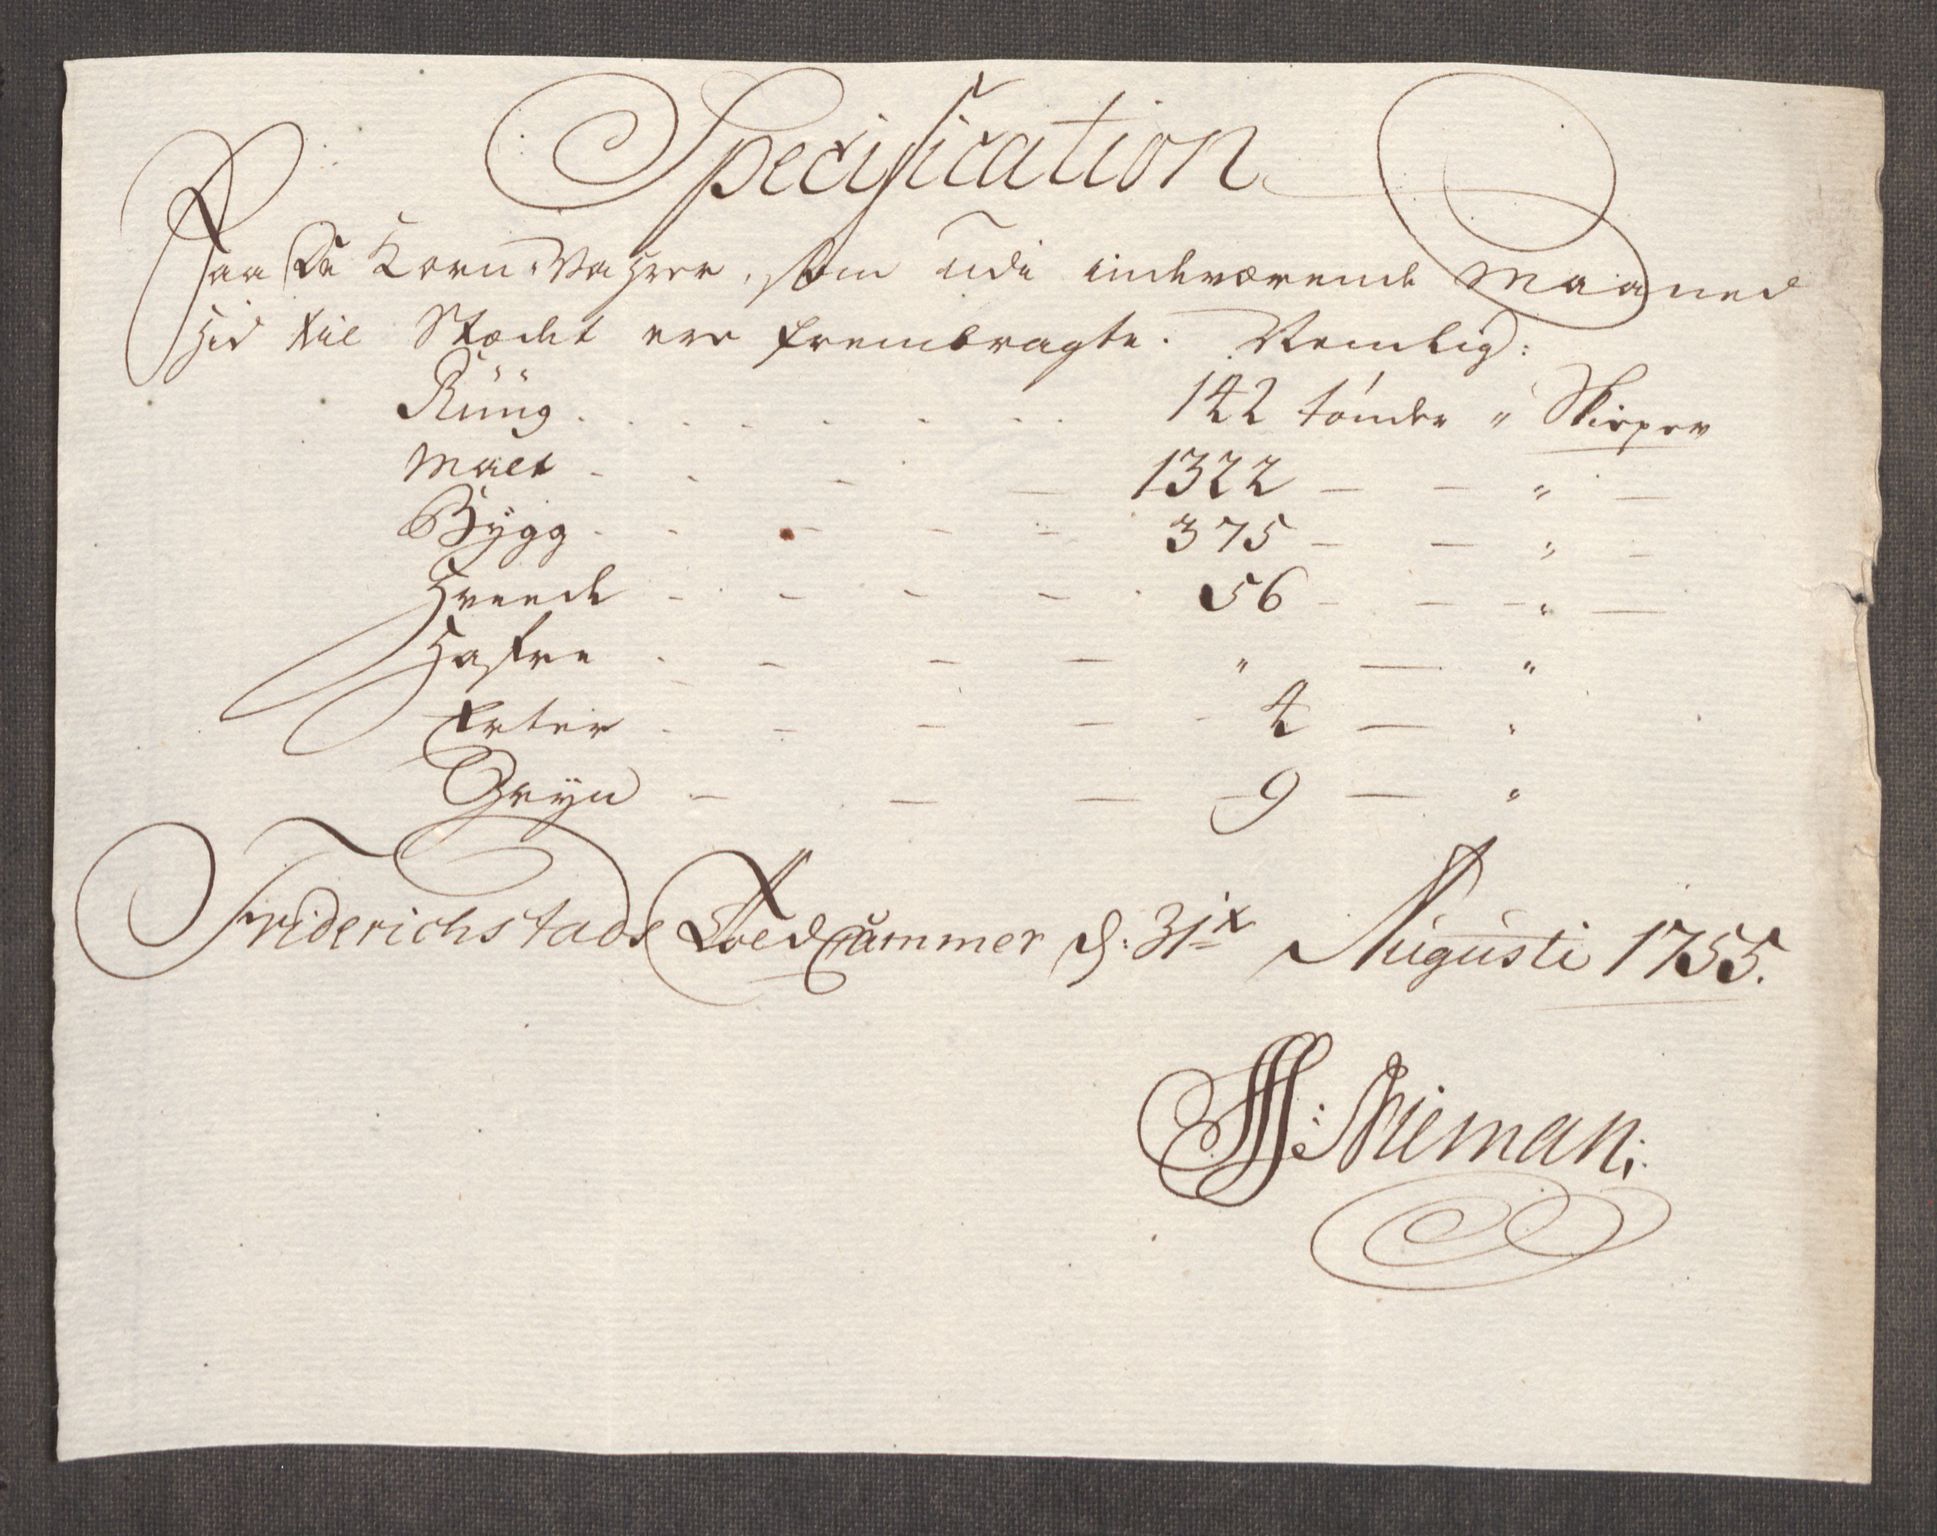 Specification
Paa De Korn-Vahrer, som udi indeværende Maaned
hid til Stædet ere frembragte. Nemlig:
Rüüg . . . . . . . 142 tønder " Skieper
Malt - - - - 1322 - - " -
Bygg - - - - - 375 - - " -
Hveede - - - - - 56 - - - " -
Hafre - - - - " - "
Erter - - - - - 4 - "
Gryn - - - - 9 - "
Friderichstads Toed Cammer d: 31te Augusti 1755.
Nieman